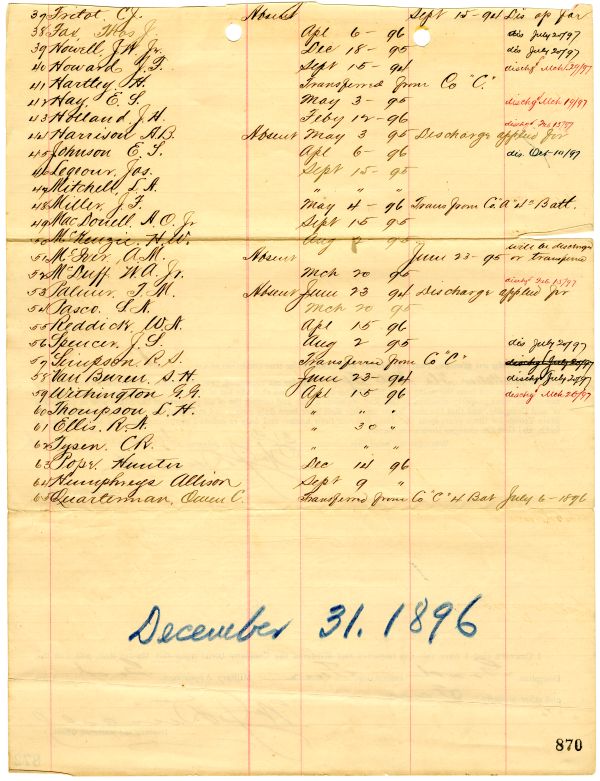 Tretot, C.J. Absent Sept 15-94 Dis ap for
38 Fax, Thos J. Apl 6 - 96 dis July 20/97
39 Howell, J.H. Jr. Dec 18 - 95 dis July 20/97
40 Howard, J.T. Sept 15 - 94 dischgd Mch 29/97
41 Hartley H. Transferred from Co "C."
42 Hay, E.S. May 3 - 95 dischgd Mch 19/97
43 J.H. Feby 12 - 96 dischgd Feb 13/97
44 Harrison A.B. Absent May 3 95 Discharge applied for
45 Johnson E.S. Apl 6 - 96 dis. Oct 10/97
46 Legeour, Jos. Sept 15 - 95
47 Mitchell, L.A. " " "
48 Miller, J.F. May 4 - 96 Trans from Co "A" 4th Batt.
49 MacDonell, A.O. Jr Sept 15 95
50 McKenzie, H.W. Aug 2 95
51 McIver, A.M. Absent June 23 - 95 will be discharge or transferred
52 McDuff, W.A. Jr. Mch 20 95
53 Palmer, T.M. Absent June 23 94 Discharge applied for dischgd Feb 13/97
54 Pasco, S.N. Mch 20 95
55 Reddick, W.N. Apl 15 96
56 Spencer, J.S. Aug 2 95 dis July 20/97
57 Simpson, R.S. Transferred from Co "C" dischgd July 20/97
58 Van Buren, S.H. June 23 - 94 dischgd July 20/97
59 Withington G.G. Apl 15 96 dischgd Mch 26/97
60 Thompson, L.H. " " "
61 Ellis, R.N. " 30 "
62 Tysen, C.R. " " "
63 Pope, Hunter Dec 14 96
64 Humphreys Allison Sept 9 "
65 Quarterman, Owen C. Transferred from Co "C" 4 Bat July 6 - 1896
December 31. 1896
870